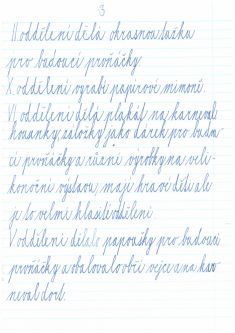 3
II. oddělení dělá okrasnou tužku
pro budoucí prvňáčky.
X. oddělení vyrábí papírové mimoně.
VI. oddělení dělá plakát na karneval
hovánky, záložky jako dárek pro budou-
cí prvňáčky a různé výrobky na veli-
konoční výstavu, mají hravé děti ale
je to velmi hlasité oddělení.
V oddělení dělalo papoušky pro budoucí
prvňáčky a obalovalo obří vejce a na kar
neval dort.